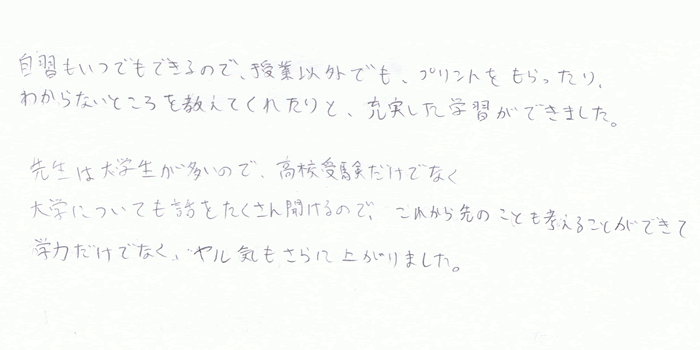 自習もいつでもできるので、授業以外でも、プリントをもらったり、
わからないところを教えてくれたりと、充実した学習ができました。
先生は大学生が多いので、高校受験だけでなく
大学についても話をたくさん聞けるので、これから先のことも考えることができて
学力だけでなく、ヤル気もさらに上がりました。